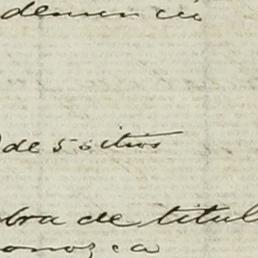 demencia
de 5 sitios
bra de titul
onozca